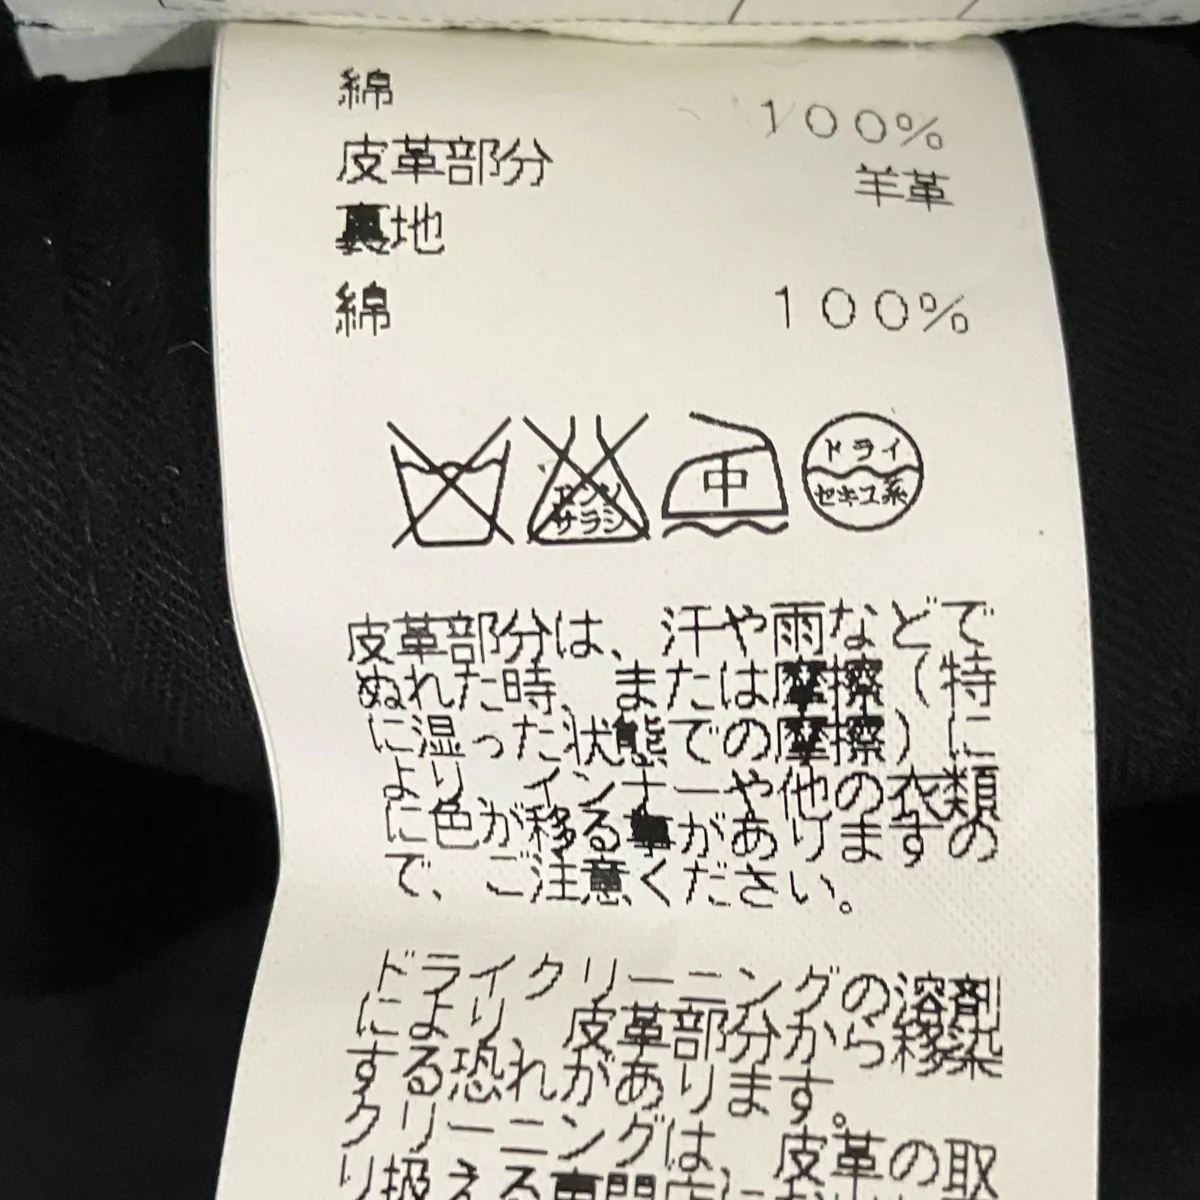 綿 100%
皮革部分 羊革
裏地
綿 100%
エンソ
サラシ
中
ドライ
セキユ系
皮革部分は、汗や雨などで
ぬれた時、または摩擦(特
に湿った状態での摩擦)に
より、インナーや他の衣類
に色が移る事がありますの
で、ご注意ください。
ドライクリーニングの溶剤
により、皮革部分から移染
する恐れがあります。
クリーニングは、皮革の取
り扱える専門店に